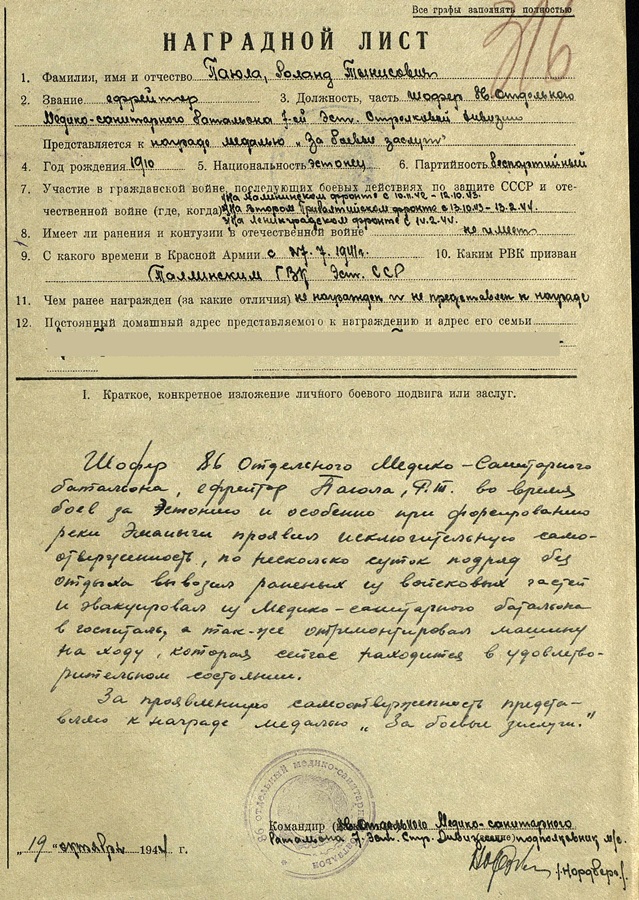 Все графы заполнять полностью
316
НАГРАДНОЙ ЛИСТ
1. Фамилия, имя и отчество Паюла, Роланд Тынисович
2. Звание ефрейтор 3. Должность, часть шофер 86 Отдельного
Медико-санитарного баталъона 7-ой Эст. Стрелковой дивизии
Представляется к награде медалью "За боевые заслуги"
4. Год рождения 1910 5. Национальность эстонец 6. Партийность беспартийный
7. Участие в гражданской войне, последующих боевых действиях по защите СССР и оте-
чественной войне (где, когда) 1) На Калининском фронте с 10.11.42 - 12.10.43.
2) На втором Прибалтийском фронте с 13.10.43 - 13.2.44.
3) На Ленинградском фронте с 14.2.44.
8. Имеет ли ранения и контузии в отечественной войне не имеет
9. С какого времени в Красной Армии с 27.7.1941г. 10. Каким РВК призван
Таллинским ГВК Эст. ССР
11. Чем ранее награжден (за какие отличия) не награжден и не представлен к награде
12. Постоянный домашный адрес представляемого к награждению и адрес его семьи
I. Краткое, конкретное изложение личного боевого подвига или заслуг.
Шофер 86 Отдельного Медико-Санитарного
баталъона, ефрейтор Паюла, Р.Т. во время
боев за Эстонию и особенно при форсировании
реки Эмайыги проявил исключительную само-
отверженность, по несколько суток подряд без
отдыха вывозил раненых из войсковых частей
и эвакуировал из Медико-санитарного батальона
в госпиталь, а так-же отремонтировал машину
на ходу, которая сейчас находится в удовлетво-
рительном состоянии.
За проявленную самоотверженность предста-
вляю к награде медалью "За боевые заслуги."
86 отдельный медико-санитарный
Командир 86 Отдельного Медико-санитарного
Баталъона 7 Эст. Стр. Дивизии подполковник м/с.
"19" октября 1944 г.